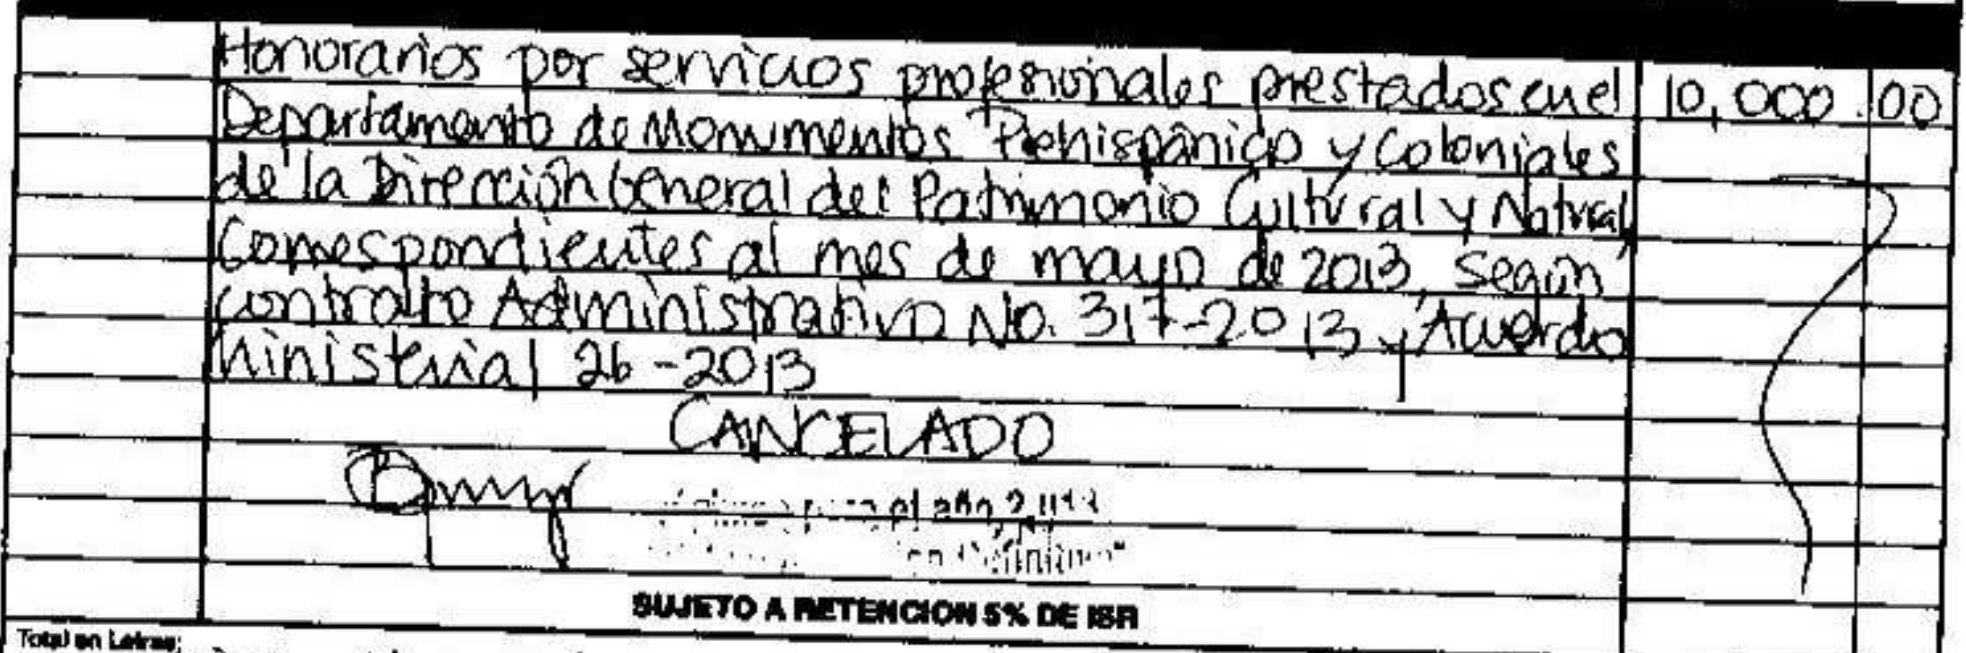 Honorarios por servicios profesionales prestados en el 10,000.00
Departamento de Monumentos Prehispánico y Coloniales
de la Dirección General del Patrimonio Cultural y Natural,
Correspondientes al mes de mayo de 2013, según
contrato Administrativo No. 317-2013 y Acuerdo
Ministerial 26-2013
CANCELADO
para el año 2,013
Definitivo"
SUJETO A RETENCION 5% DE ISR
Total en Letras: